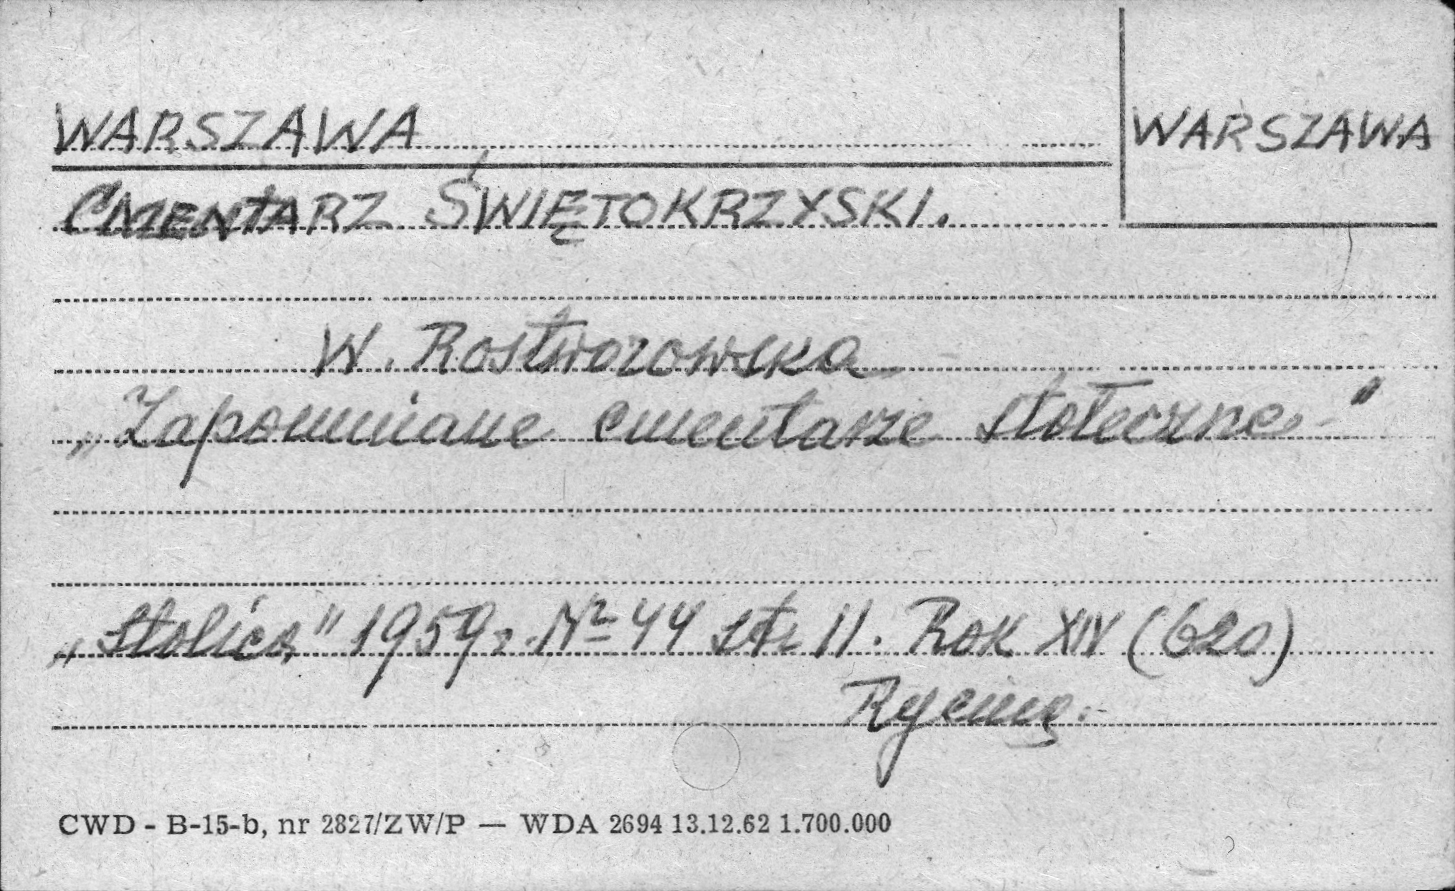 WARSZAWA
WARSZAWA
CMENTARZ ŚWIĘTOKRZYSKI.
W. Rostworowska
„Zapomniane cmentarze stołeczne"
„Stolica" 1959 r. № 44 str. 11. Rok XIV (620)
Ryciny.
CWD - B-15-b, nr 2827/ZW/P — WDA 2694 13.12.62 1.700.000